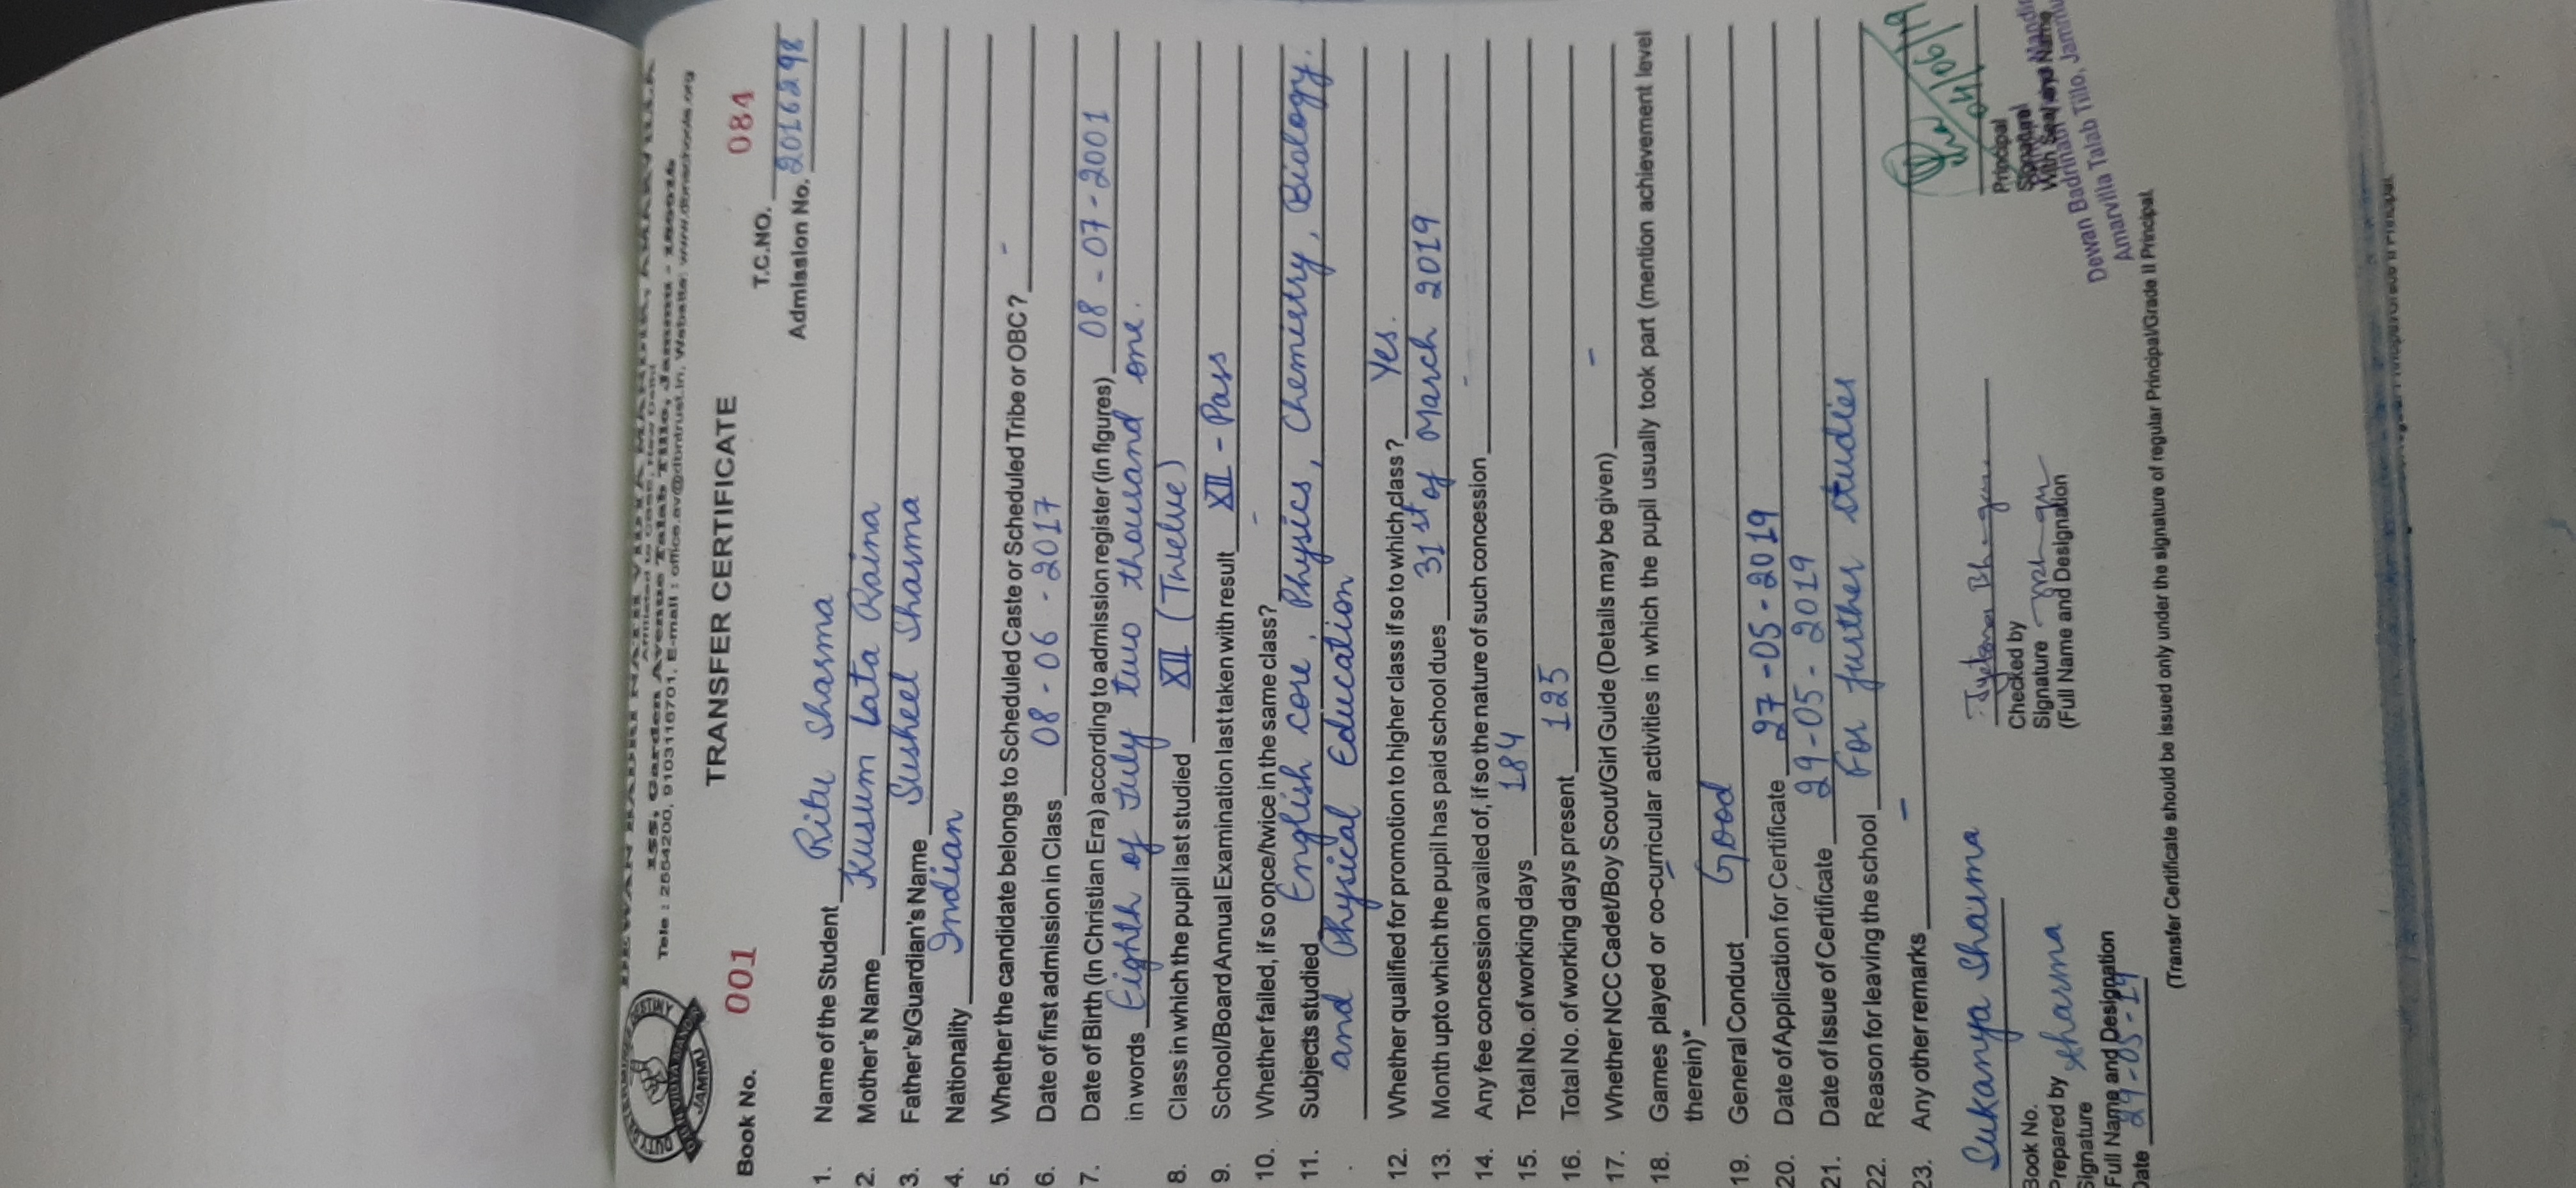 DEWAN BADRI NATH VIDYA MANDIR, AMARVILLA
Affiliated to CBSE, New Delhi
Iss, Garden Avenue Talab Tillo, Jammu -
Tele : 2554200, 9103116701, E-mail : office.av@dbntrust.in, Website: www.dbnschools.org
JAMMU
TRANSFER CERTIFICATE
Book No. 001 T.C.NO. 084
Admission No. 20166298
1. Name of the Student Ritu Sharma
2. Mother's Name Kusum Lata Raina
3. Father's/Guardian's Name Susheel Sharma
4. Nationality Indian
5. Whether the candidate belongs to Scheduled Caste or Scheduled Tribe or OBC? -
6. Date of first admission in Class 08-06-2017
7. Date of Birth (in Christian Era) according to admission register (in figures) 08-07-2001
in words Eighth of July two thousand one.
8. Class in which the pupil last studied XII (Twelve)
9. School/Board Annual Examination last taken with result XII - Pass
10. Whether failed, if so once/twice in the same class? -
11. Subjects studied English core, Physics, Chemistry, Biology.
and Physical Education
12. Whether qualified for promotion to higher class if so to which class? Yes.
13. Month upto which the pupil has paid school dues 31st of March 2019
14. Any fee concession availed of, if so the nature of such concession -
15. Total No. of working days 184
16. Total No. of working days present 125
17. Whether NCC Cadet/Boy Scout/Girl Guide (Details may be given) -
18. Games played or co-curricular activities in which the pupil usually took part (mention achievement level
therein)*
19. General Conduct Good
20. Date of Application for Certificate 27-05-2019
21. Date of Issue of Certificate 29-05-2019
22. Reason for leaving the school For further studies
23. Any other remarks -
Sukanya Sharma
04/06/19
Book No. Checked by Principal
Prepared by Sharma Signature Signature
Signature (Full Name and Designation With Seal and Name
Full Name and Designation Dewan Badrinath Vidya Mandir
Date 29-05-19 Amarvilla Talab Tillo, Jammu
(Transfer Certificate should be issued only under the signature of regular Principal/Grade II Principal.